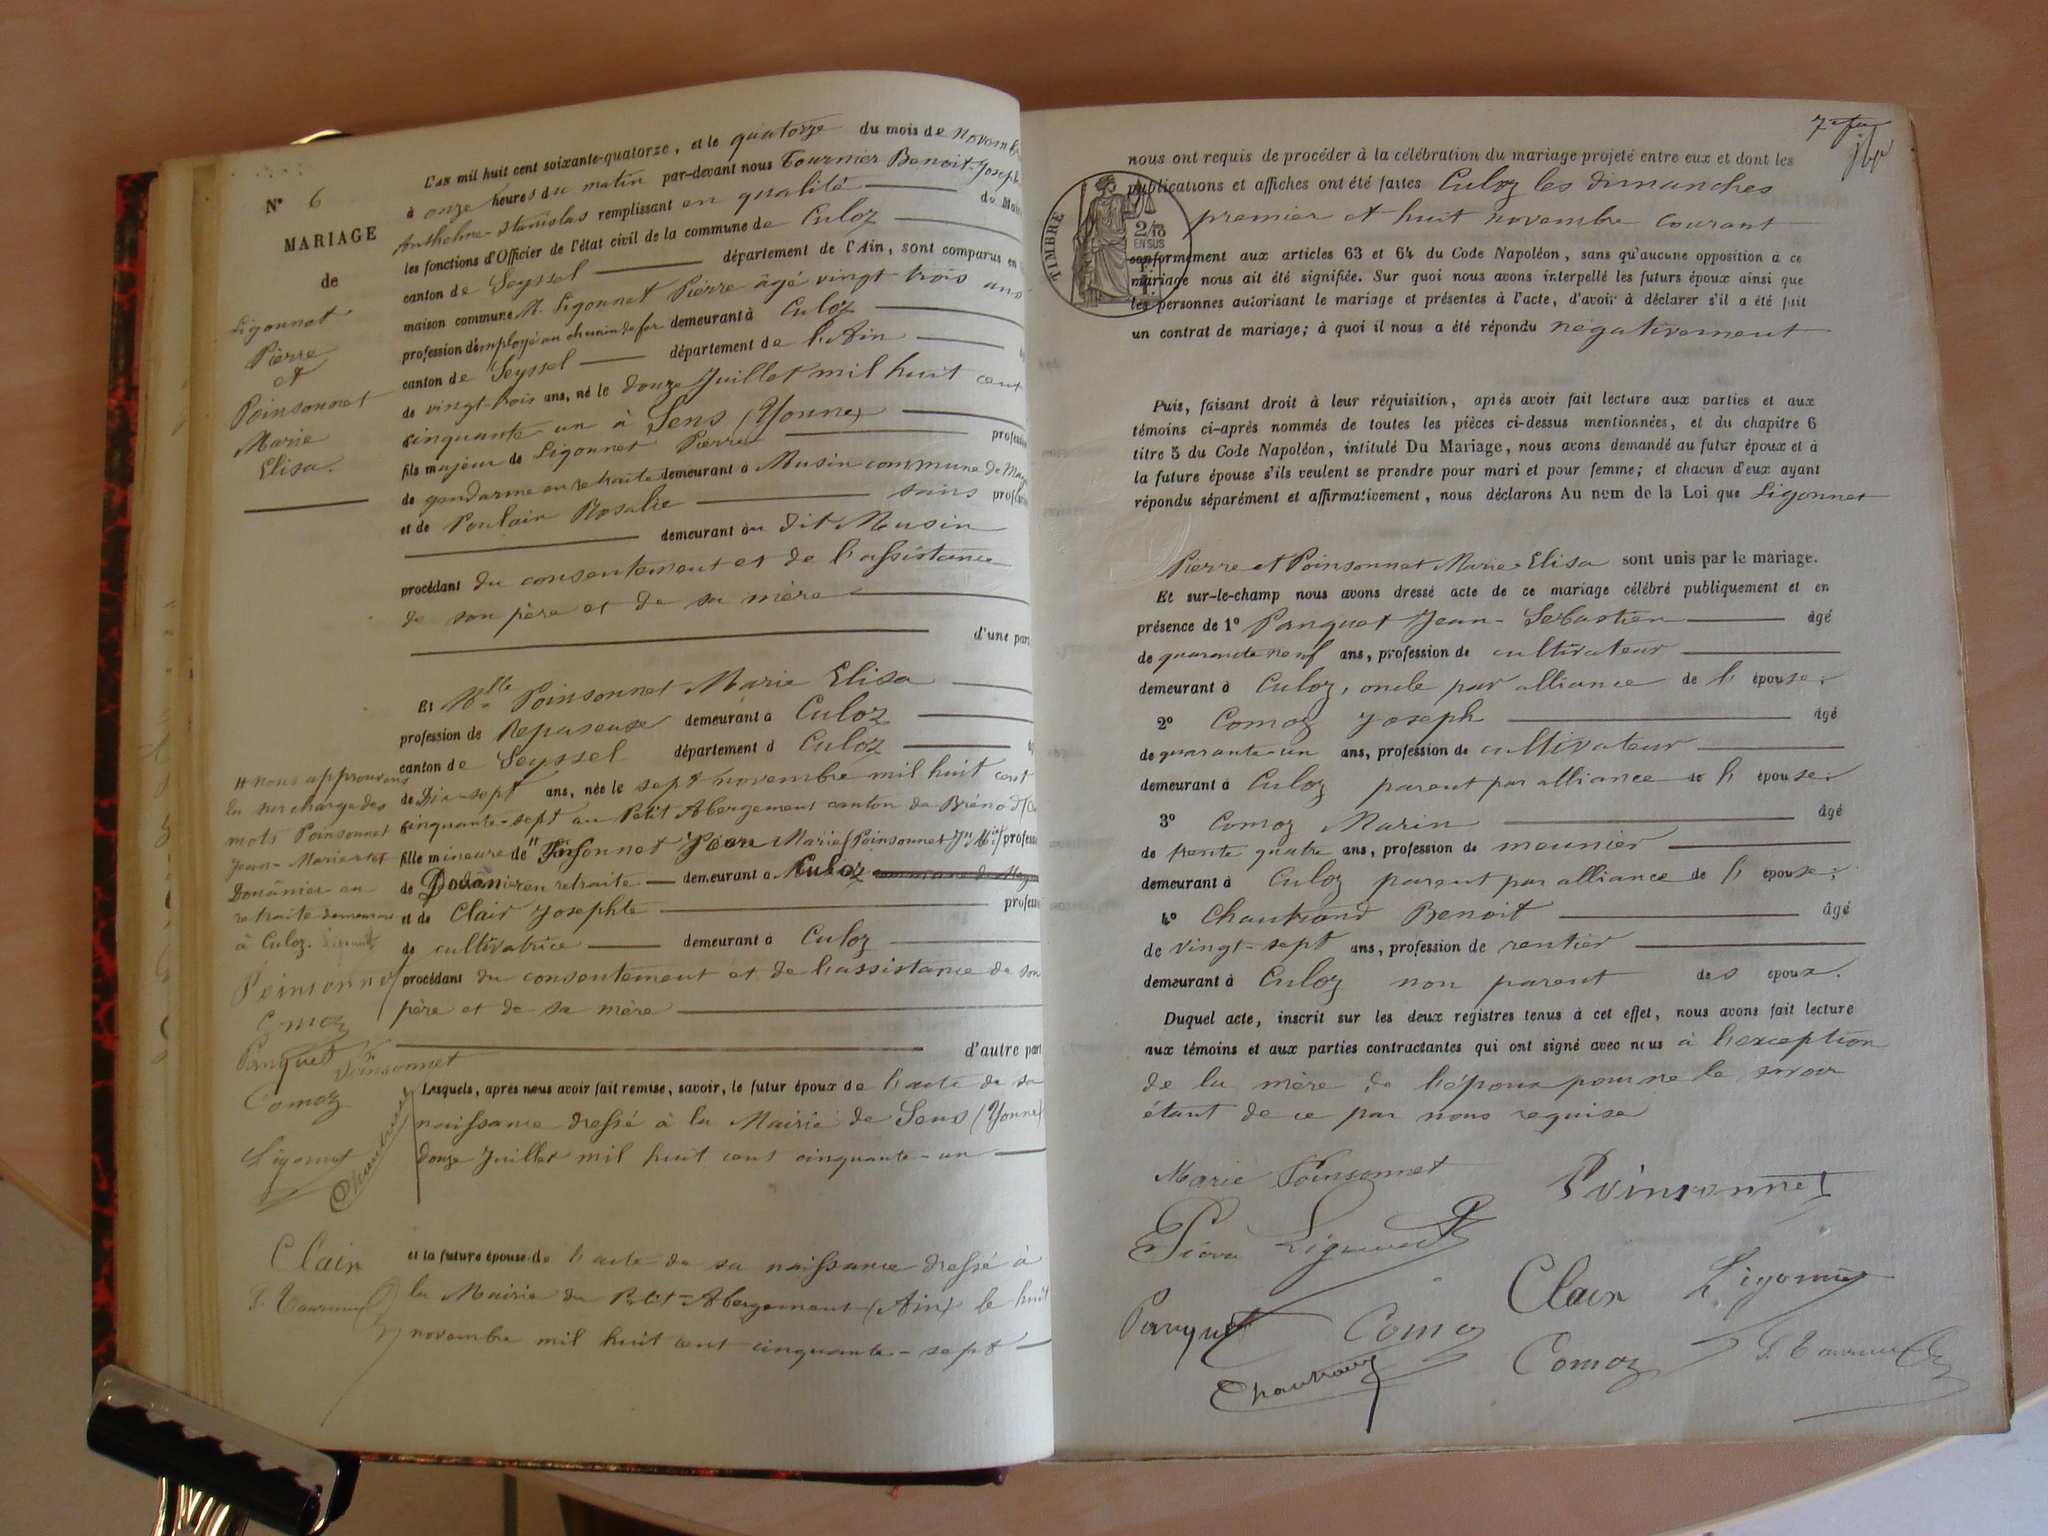 N° 6
MARIAGE
de
Ligonnet
Pierre
et
Poinsonnet
Marie
Elisa.
L'an mil huit cent soixante-quatorze, et le quatorze du mois de novemb
à onze heures du matin par-devant nous Tournier Benoit-Joseph
Anthelme-Stanislas remplissant en qualité de Maire
les fonctions d'Officier de l'état civil de la commune de Culoz
canton de Seyssel département de l'Ain, sont comparus en
maison commune M. Ligonnet Pierre âgé vingt-trois ans
profession d'employé au chemin de fer demeurant à Culoz
canton de Seyssel département de l'Ain
de vingt-trois ans, né le douze Juillet mil huit cent
cinquante-un à Sens (Yonne)
fils majeur de Ligonnet Pierre profession
de gendarme en retraite demeurant à Musin commune de
et de Poulain Rosalie sans profession
demeurant au dit Musin
procédant du consentement et de l'assistance
de son père et de sa mère
d'une part
Et Mlle Poinsonnet Marie Elisa
profession de Repasseuse demeurant à Culoz
canton de Seyssel département d Culoz
de Dix-sept ans, née le sept novembre mil huit cent
cinquante-sept au Petit Abergement canton de Brénod
fille mineure de Poinsonnet Marie (Poinsonnet Jn Mie) profession
de Douânier en retraite demeurant à Culoz
et de Clair Josephte profession
de cultivatrice demeurant à Culoz
procédant du consentement et de l'assistance de son
père et de sa mère
d'autre part
nous approuvons
la surcharge des
mots Poinsonnet
Jean-Marie et
Douânier en
retraite demeurant
à Culoz.
Poinsonnet
Comoz
Panquet Poinsonnet
Comoz
Ligonnet
Chautrand
Clair
Lesquels, après nous avoir fait remise, savoir, le futur époux de l'acte de sa
naissance dressé à la Mairie de Sens (Yonne)
douze Juillet mil huit cent cinquante-un
et la future épouse de l'acte de sa naissance dressé à
la Mairie du Petit-Abergement (Ain) le huit
novembre mil huit cent cinquante-sept
TIMBRE
2/10
EN SUS
nous ont requis de procéder à la célébration du mariage projeté entre eux et dont les
publications et affiches ont été faites Culoz les dimanches
premier et huit novembre courant
conformément aux articles 63 et 64 du Code Napoléon, sans qu'aucune opposition à ce
mariage nous ait été signifiée. Sur quoi nous avons interpellé les futurs époux ainsi que
les personnes autorisant le mariage et présentes à l'acte, d'avoir à déclarer s'il a été fait
un contrat de mariage; à quoi il nous a été répondu négativement
Puis, faisant droit à leur réquisition, après avoir fait lecture aux parties et aux
témoins ci-après nommés de toutes les pièces ci-dessus mentionnées, et du chapitre 6
titre 5 du Code Napoléon, intitulé Du Mariage, nous avons demandé au futur époux et à
la future épouse s'ils veulent se prendre pour mari et pour femme; et chacun d'eux ayant
répondu séparément et affirmativement, nous déclarons Au nom de la Loi que Ligonnet
Pierre et Poinsonnet Marie-Elisa sont unis par le mariage.
Et sur-le-champ nous avons dressé acte de ce mariage célébré publiquement et en
présence de 1° Panquet Jean-Sébastien âgé
de quarante neuf ans, profession de cultivateur
demeurant à Culoz, oncle par alliance de l'épouse.
2° Comoz Joseph âgé
de quarante-un ans, profession de cultivateur
demeurant à Culoz parent par alliance de l'épouse.
3° Comoz Marin âgé
de trente quatre ans, profession de meunier
demeurant à Culoz parent par alliance de l'épouse;
4° Chautrand Benoit âgé
de vingt-sept ans, profession de rentier
demeurant à Culoz non parent des époux.
Duquel acte, inscrit sur les deux registres tenus à cet effet, nous avons fait lecture
aux témoins et aux parties contractantes qui ont signé avec nous à l'exception
de la mère de l'époux pour ne le savoir
étant de ce par nous requise
Marie Poinsonnet
Poinsonnet
Pierre Ligonnet
Clair
Ligonnet
Panquet
Comoz
Comoz
Chautrand